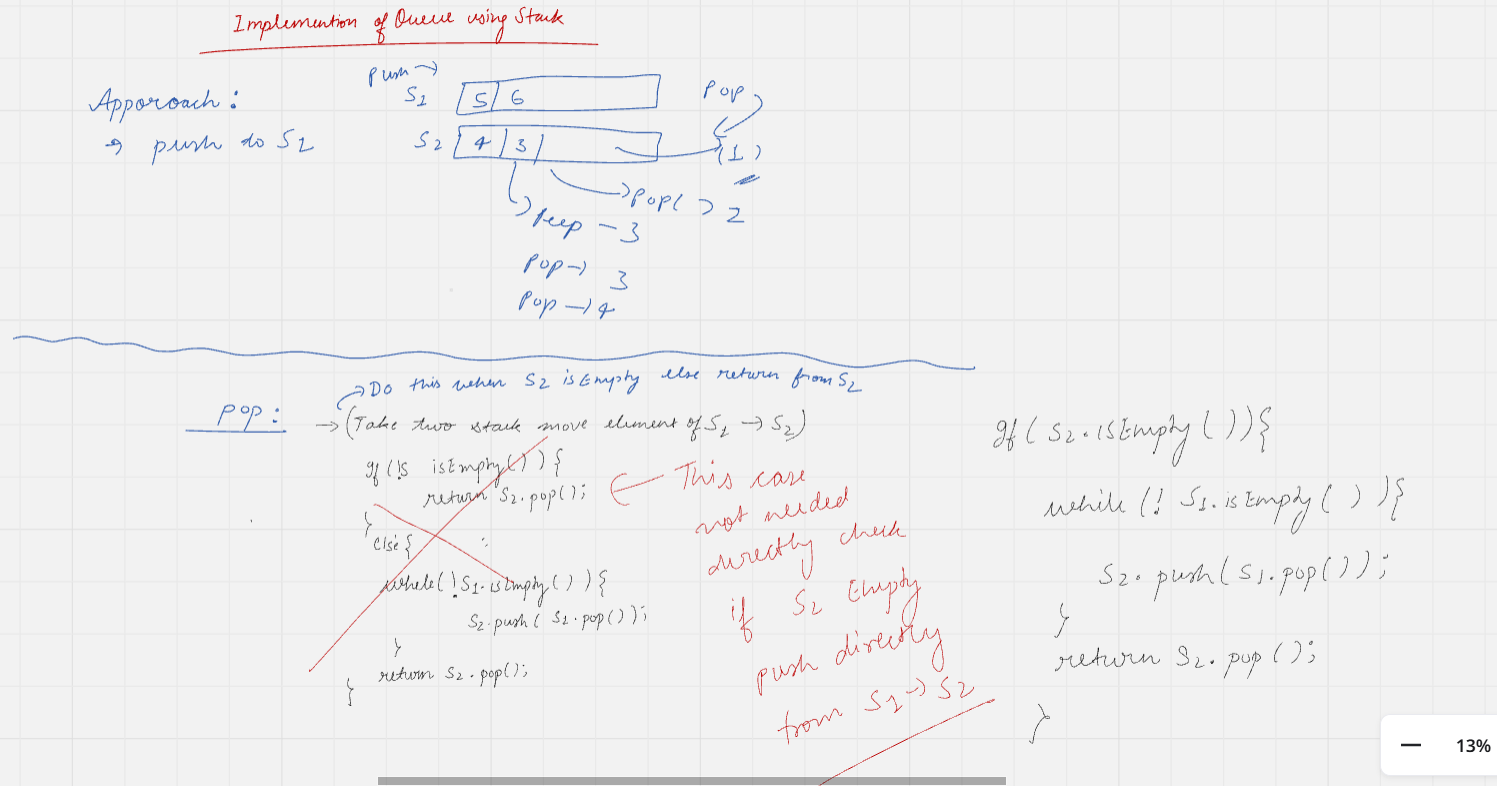 Implemention of Queue using Stack
Apporoach:
→ push to S1
Push →
S1 5 6
S2 4 3
Pop
(1)
Pop() 2
Peep - 3
Pop → 3
Pop → 4
→ Do this when S2 isEmpty else return from S2
pop: → (Take two stack move element of S1 → S2)
If (!S isEmpty()) {
return S2.pop();
}
else {
while(!S1.isEmpty()) {
S2.push( S1.pop());
}
return S2.pop();
}
← This case
not needed
directly check
if S2 Empty
push directly
from S1 → S2
If ( S2.isEmpty ( )) {
while (! S1.isEmpty ( ) ) {
S2.push( S1.pop());
}
return S2.pop ();
}
13%